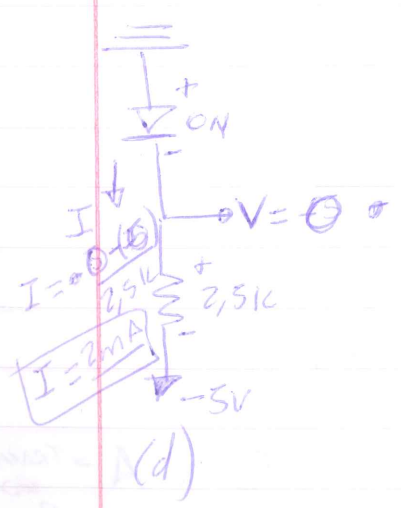 +
ON
-
I
V = 0
I = 0-(5)
2,5K
+
2,5K
-
I = 2mA
-5V
(d)